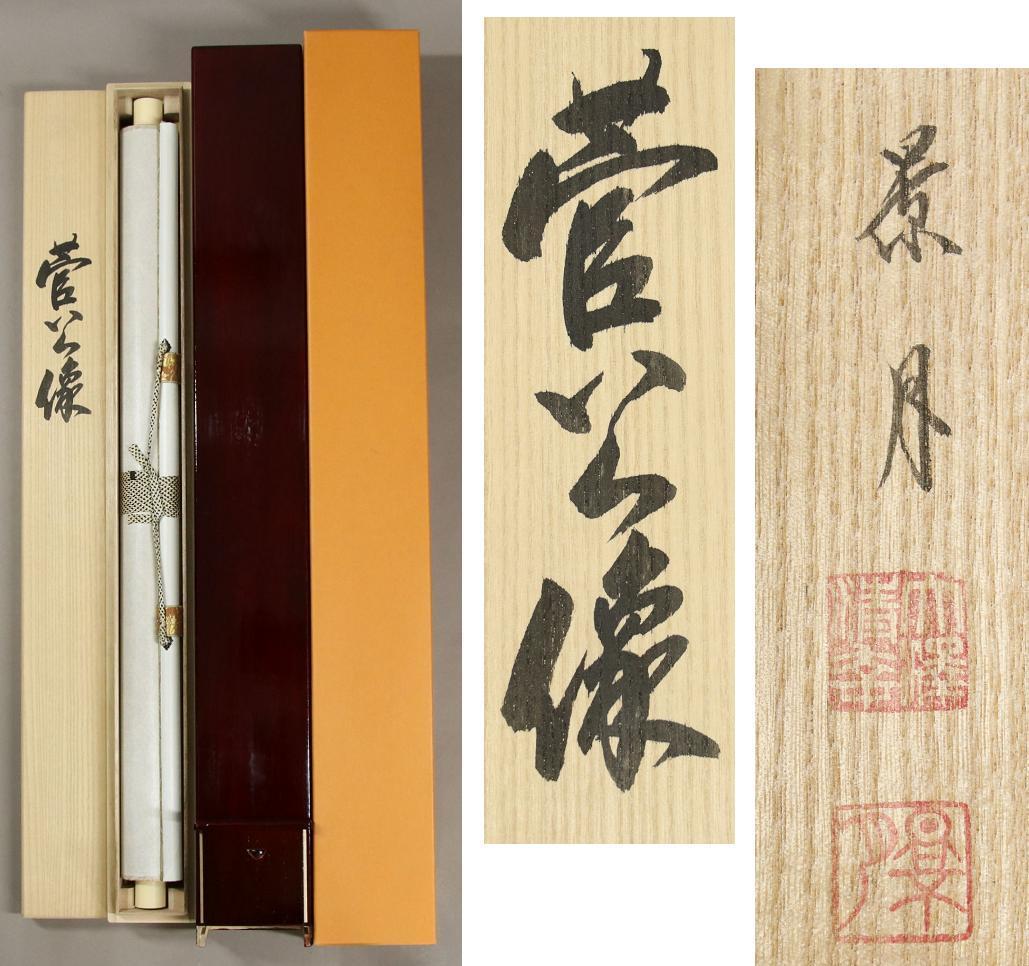 菅公像
菅公像
景月